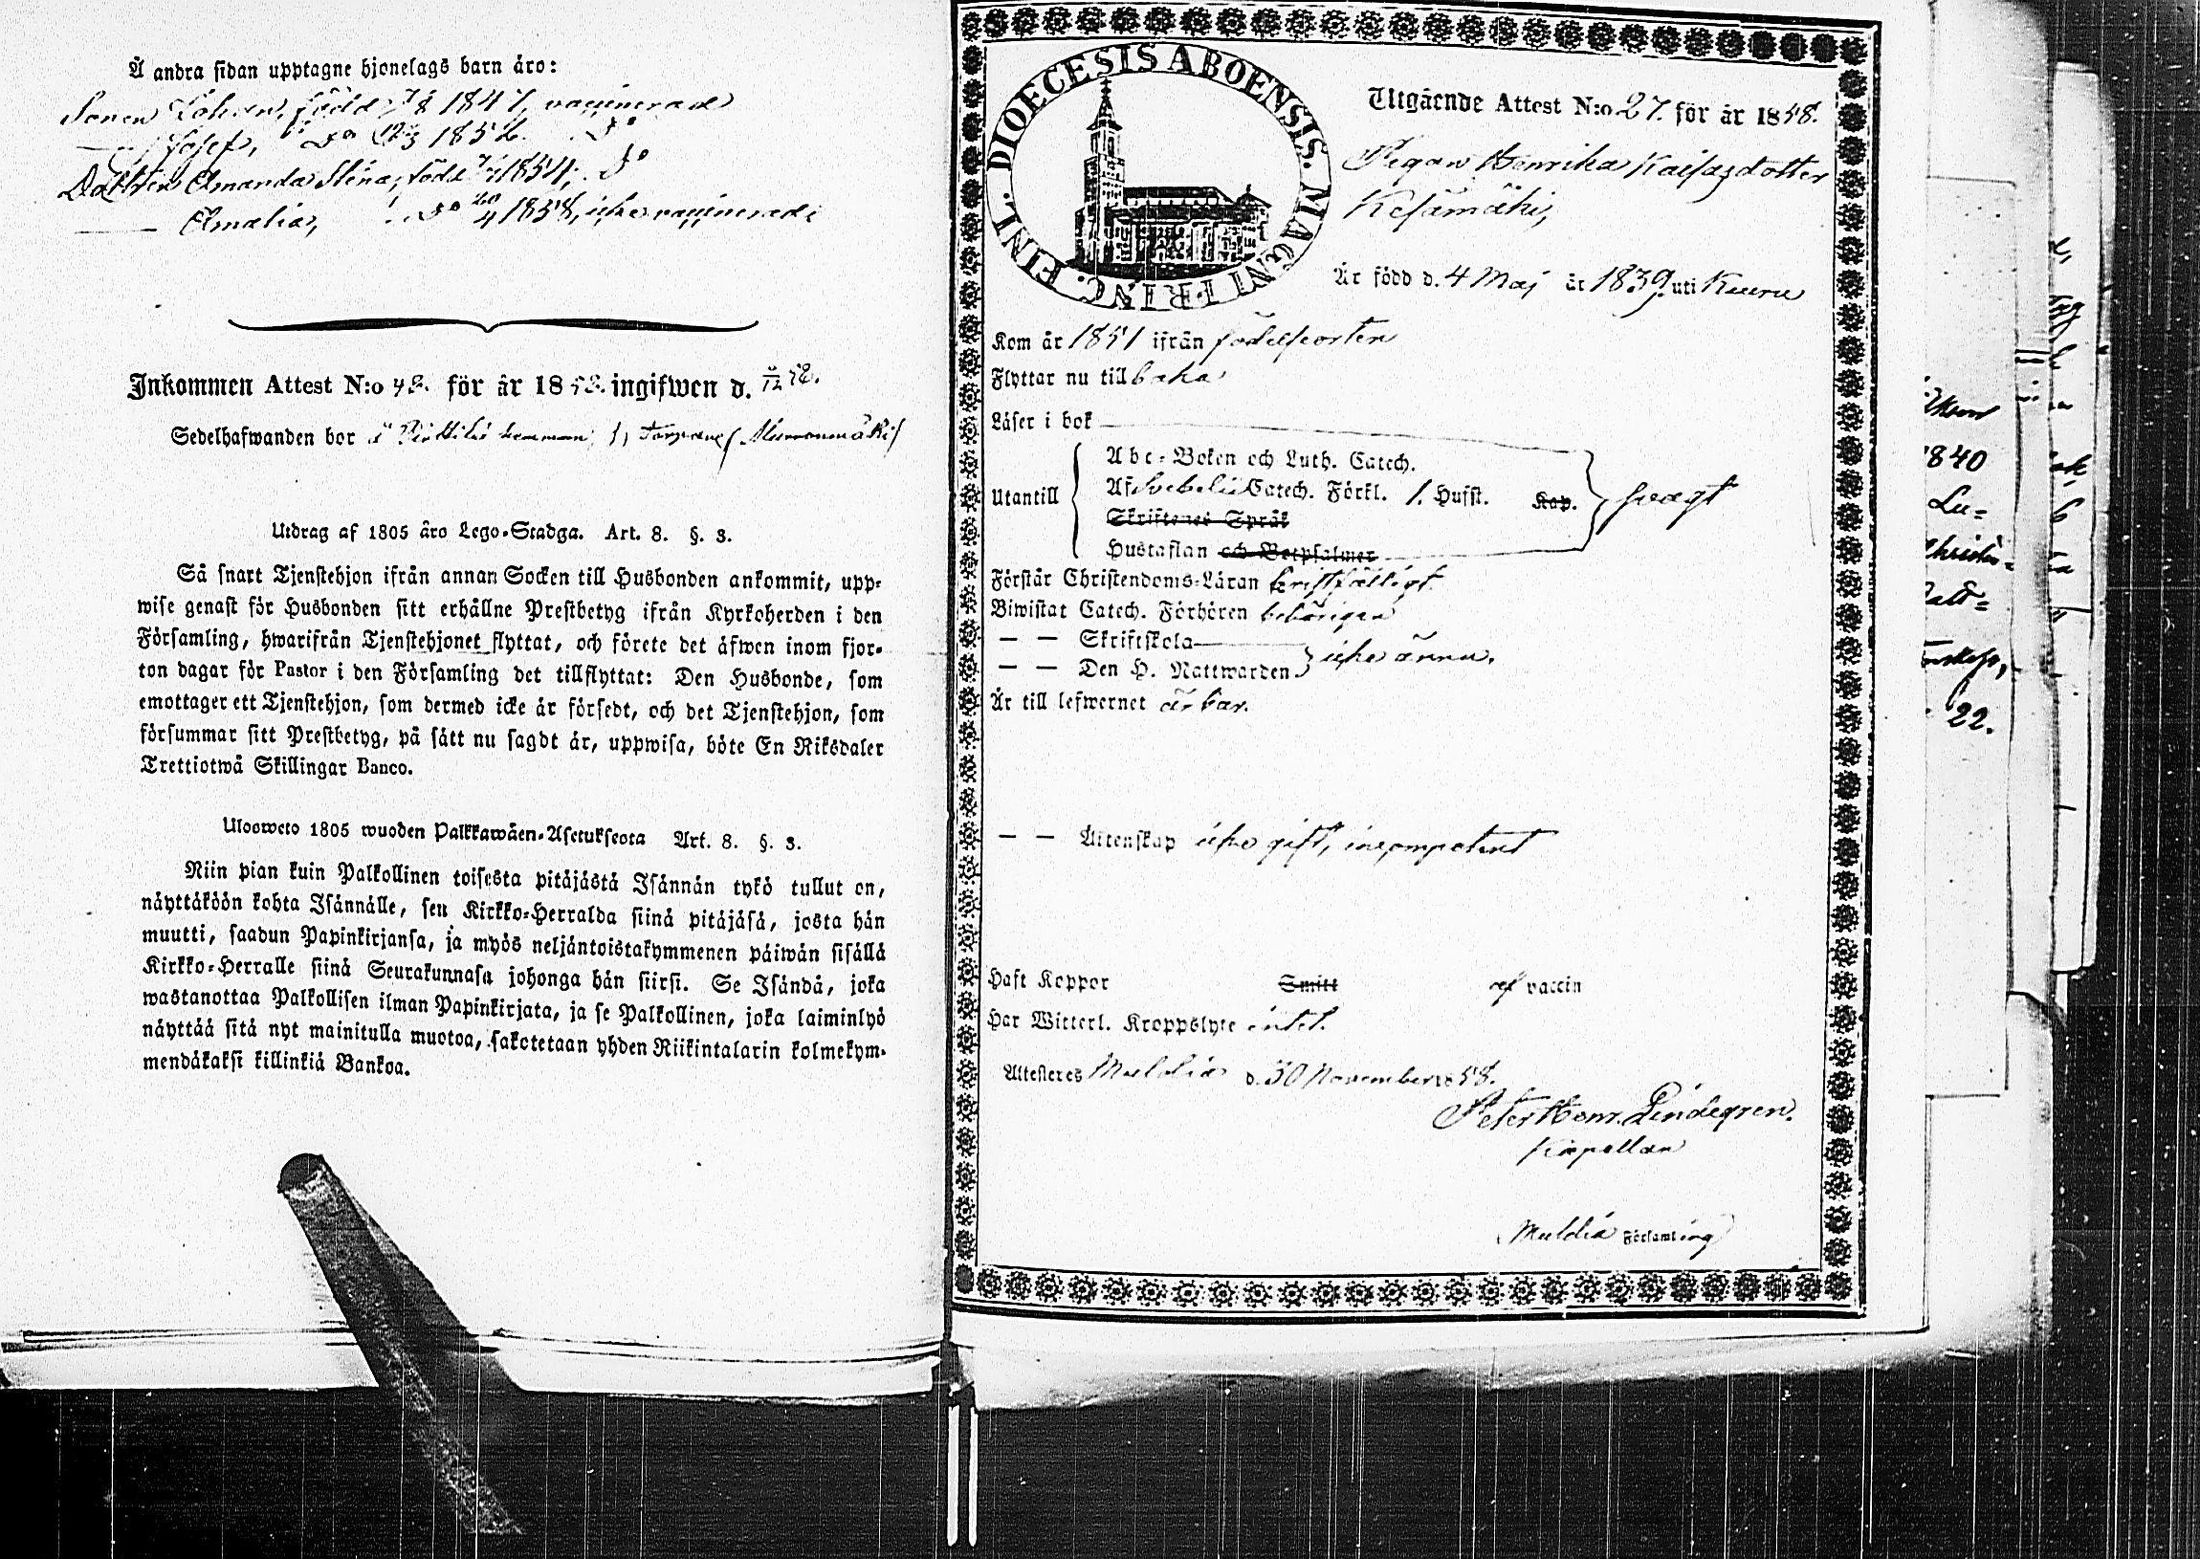 Å andra sidan upptagne hjonelags barn äro:
Sonen Johan, född 1847, vaccinerad
— Josef, do 1852. do
Dottren Amanda Stina, född 1854, do
— Amalia, do 20/4 1858, icke vaccinerad;
Inkommen Attest N:o 42. för år 1858. ingifwen d. /12 58.
Sedelhafwanden bor å hemman,
Utdrag af 1805 åro Lego-Stadga. Art. 8. §. 3.
Så snart Tjenstehjon ifrån annan Socken till Husbonden ankommit, upp-
wise genast för Husbonden sitt erhållne Prestbetyg ifrån Kyrkoherden i den
Församling, hwarifrån Tjenstehjonet flyttat, och förete det äfwen inom fjor-
ton dagar för Pastor i den Församling det tillflyttat: Den Husbonde, som
emottager ett Tjenstehjon, som dermed icke är försedt, och det Tjenstehjon, som
försummar sitt Prestbetyg, på sätt nu sagdt är, uppwisa, böte En Riksdaler
Trettiotwå Skillingar Banco.
Uloosweto 1805 wuoden Palkkawäen-Asetuksesta Art. 8. §. 3.
Niin pian kuin Palkollinen toisesta pitäjästä Isännän tykö tullut on,
näyttäköön kohta Isännälle, sen Kirkko-Herralda siinä pitäjäsä, josta hän
muutti, saadun Papinkirjansa, ja myös neljäntoistakymmenen päiwän sisällä
Kirkko-Herralle siinä Seurakunnasa johonga hän siirsi. Se Isändä, joka
wastanottaa Palkollisen ilman Papinkirjata, ja se Palkollinen, joka laiminlyö
näyttää sitä nyt mainitulla muotoa, sakotetaan yhden Riikintalarin kolmekym-
mendäkaksi killinkiä Bankoa.
DIOECESIS ABOENSIS. MAGNI PRINC. FINL.
Utgående Attest N:o 27. för år 1858.
Pigan Henrika Kaisasdotter
Kesämäki,
Är född d. 4 Maj år 1839. uti Kuru
Kom år 1851 ifrån födelseorten
Flyttar nu tillbaka
Läser i bok
Utantill
Abc-Boken och Luth. Catech.
Af Svebelii Catech. Förkl. 1. Hufst. Kap. svagt
Skriftenes Språk
Hustaflan och Botpsalmer
Förstår Christendoms-Läran bristfälligt.
Biwistat Catech. Förhören behörigen
— — Skriftskola
— — Den H. Nattwarden icke ännu.
Är till lefwernet ärbar.
— — Äktenskap icke gift, incompetent
Haft Koppor Smitt af vaccin
Har Witterl. Kroppslyte intet.
Attesteres Muldia d. 30 November 1858.
Peter Henr. Lindegren.
Kapellan
Muldia Församling
1840
Lu=
22.